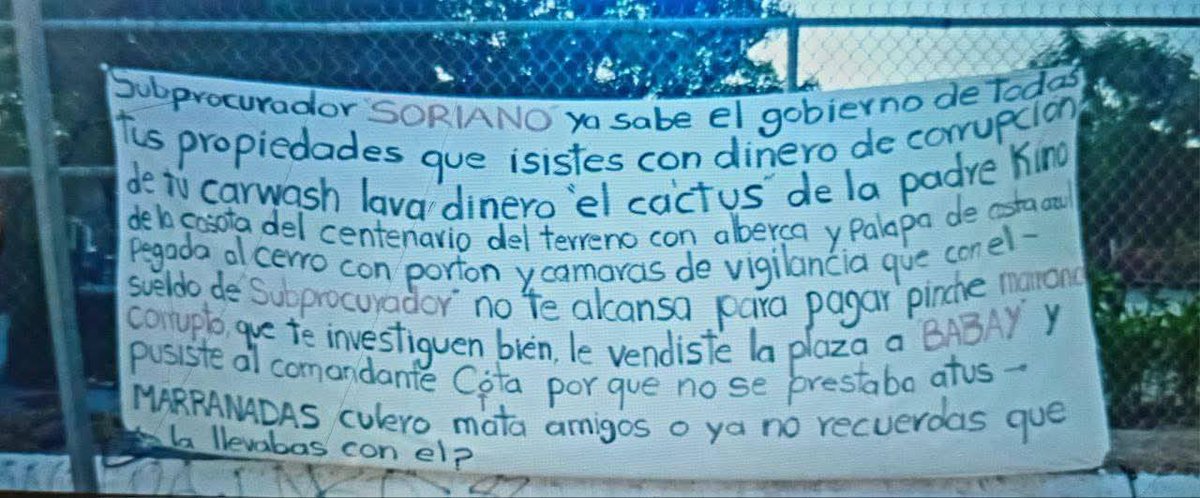 Subprocurador "SORIANO" ya sabe el gobierno de Todas
Tus propiedades que isistes con dinero de corrupcion
de tu carwash lava dinero "el cactus" de la padre Kino
de la casota del centenario del terreno con alberca y Palapa de asta azul
Pegada al cerro con porton y camaras de vigilancia que con el -
sueldo de "Subprocurador" no te alcansa para pagar pinche marrano
corrupto, que te investiguen bien, le vendiste la plaza a "BABAY" y
pusiste al comandante Cota por que no se prestaba atus -
MARRANADAS culero mata amigos o ya no recuerdas que
la llevabas con el?